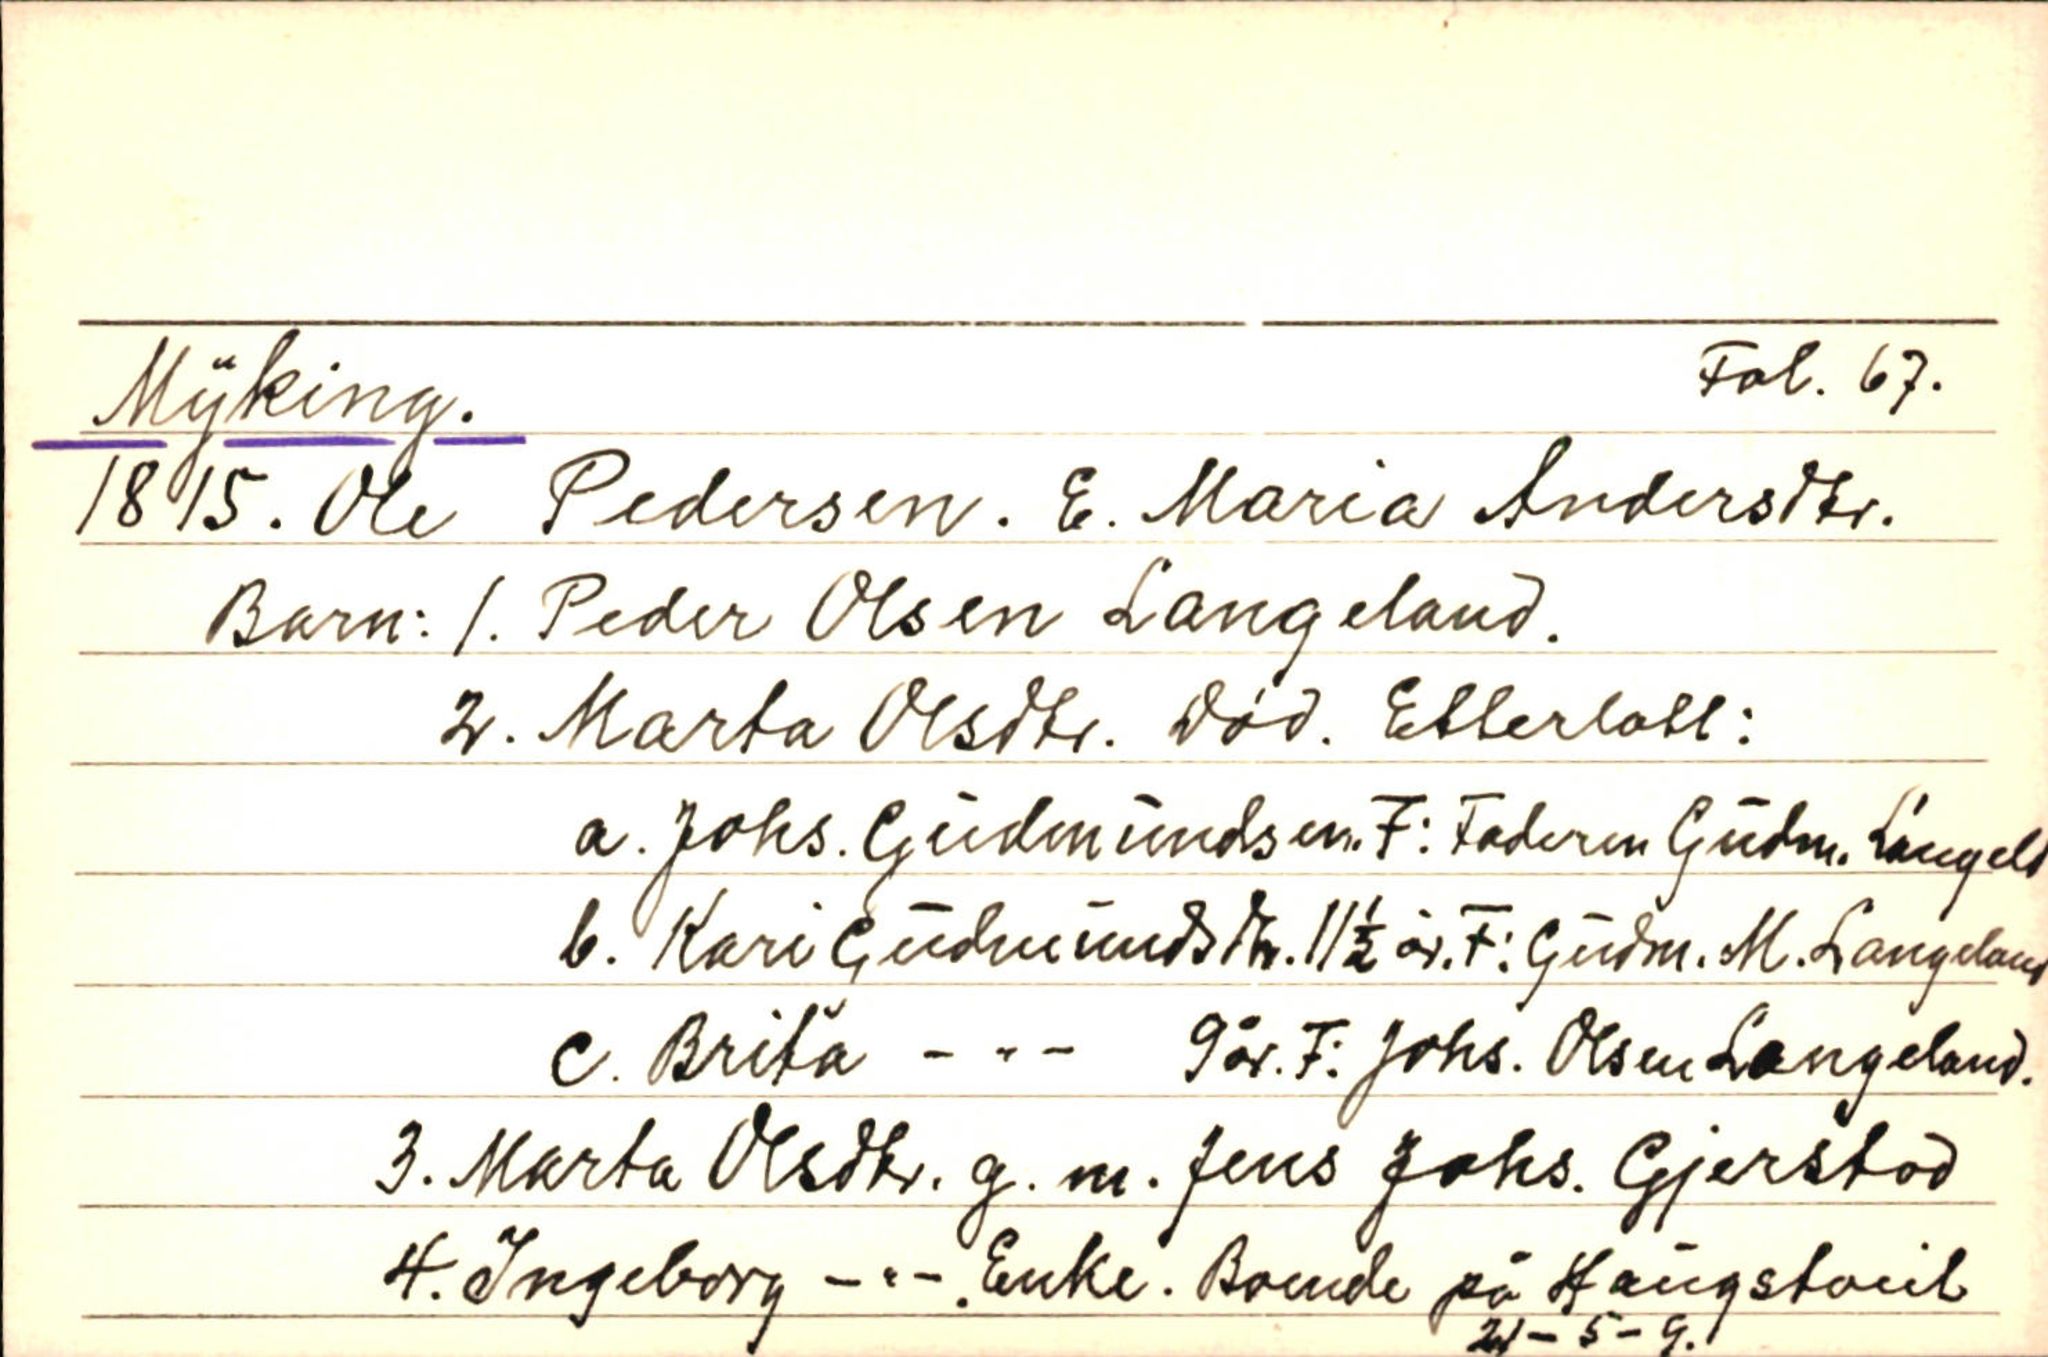 Myking. Fol. 67.
1815. Ole Pedersen. E. Maria Andersdtr.
Barn: 1. Peder Olsen Langeland.
2. Marta Olsdtr. Död. Etterlatt:
a. Johs. Gudmundsen. F: Faderen Gudm. Langeld
b. Kari Gudmundsdtr. 11 1/2 år. F: Gudm. M. Langeland
c. Brita - " - 9 år. F: Johs. Olsen Langeland.
3. Marta Olsdtr. g. m. Jens Johs. Gjerstad
4. Ingeborg - " - . Enke. Boende på Haugstveit
21-5-9.